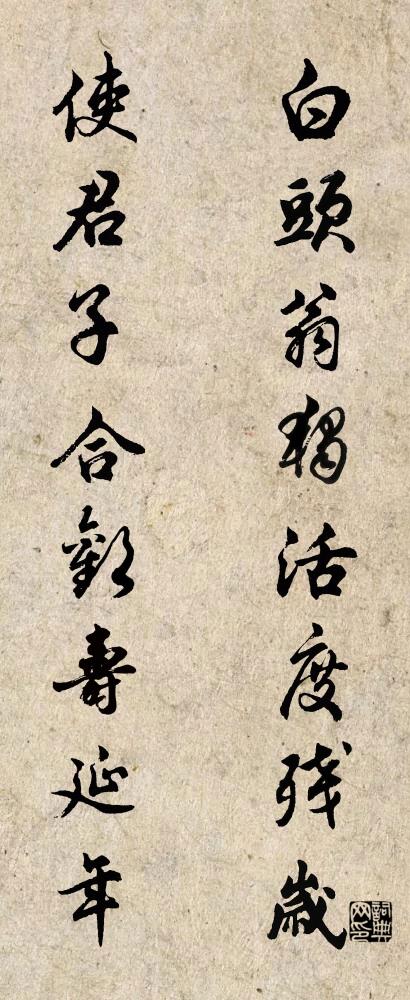 白頭翁獨活度残歲
使君子合歡壽延年
詞典網印